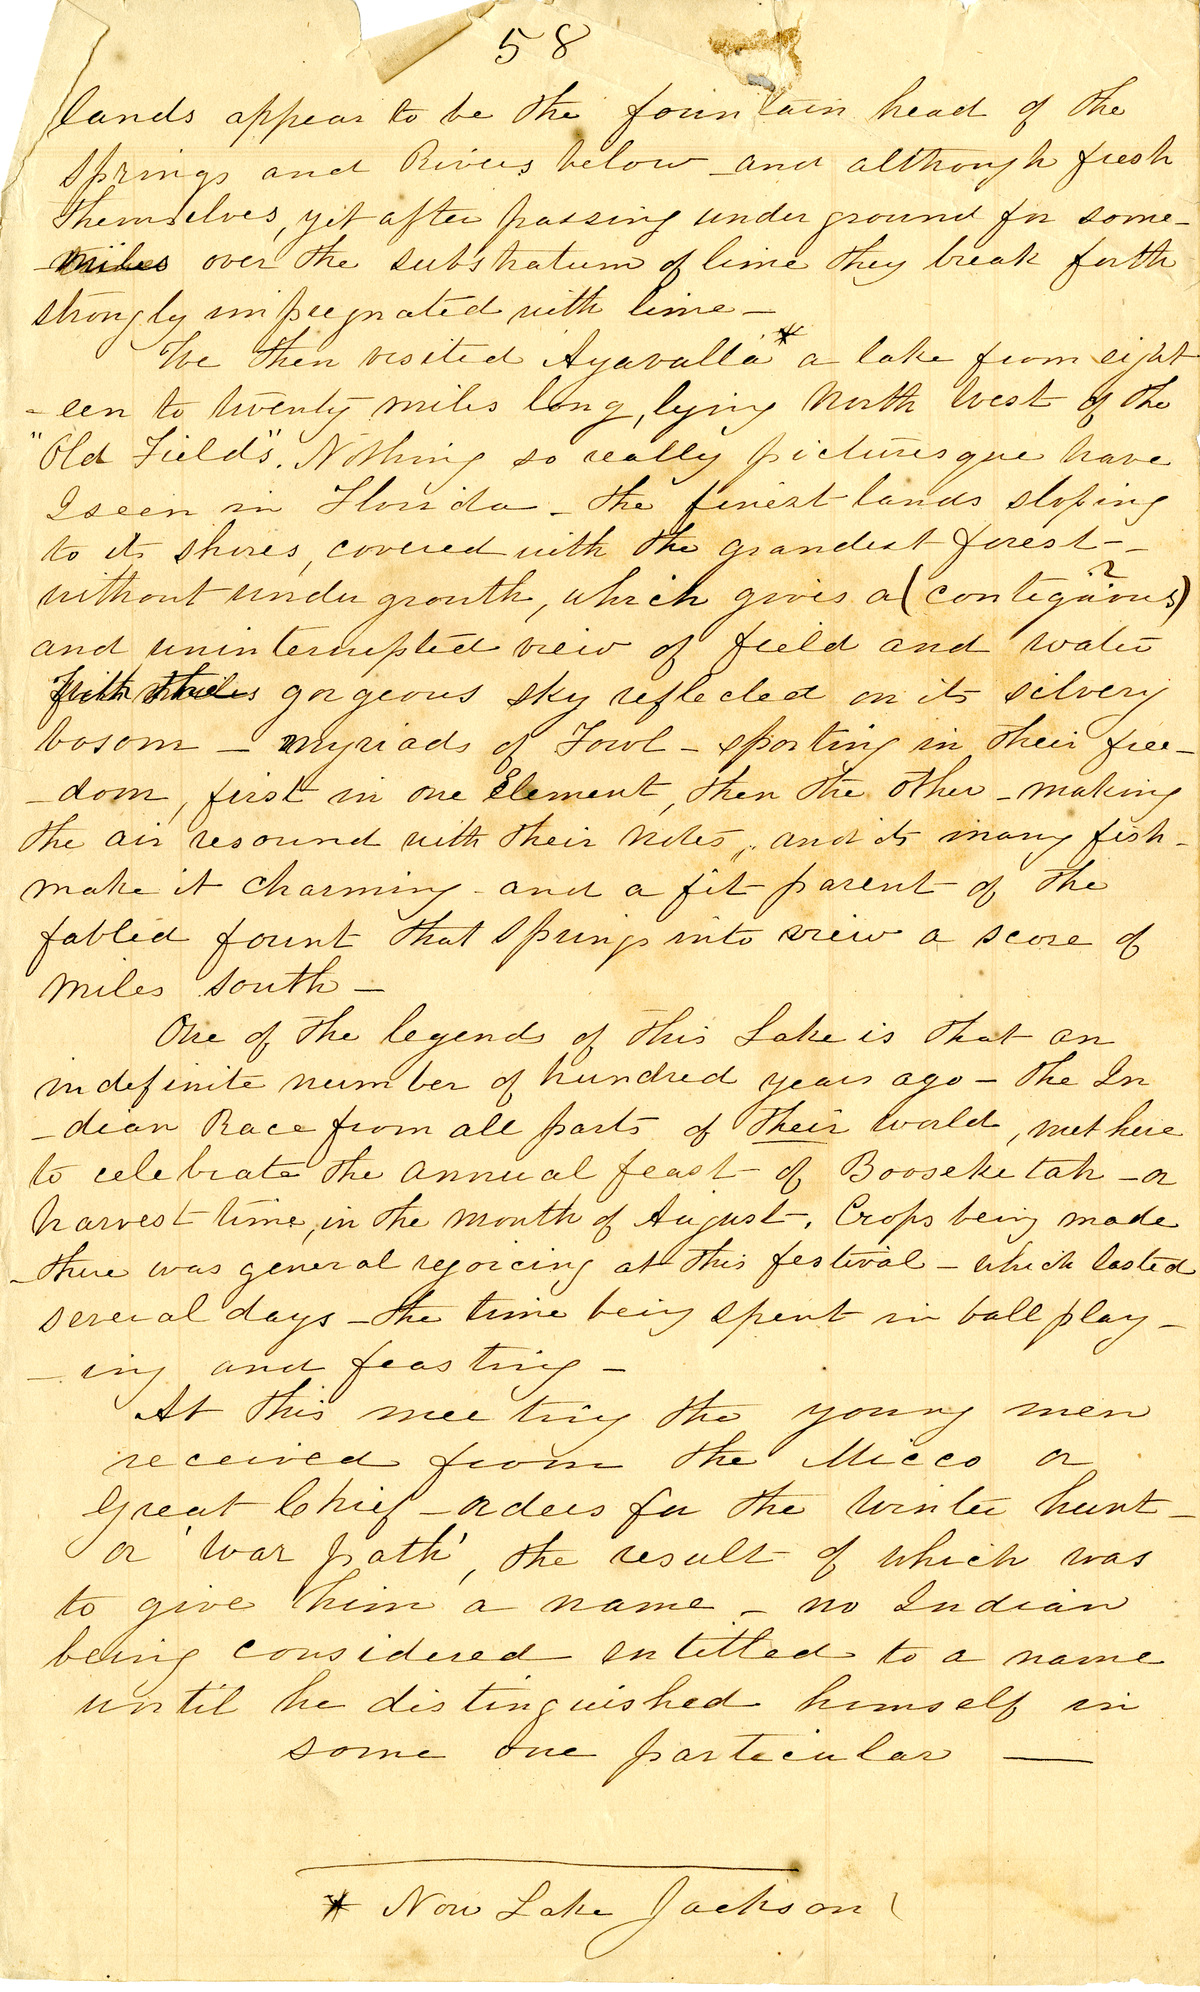 58
lands appear to be the fountain head of the
springs and Rivers below - and although fresh
themselves, yet after passing under ground for some -
- miles over the substratum of lime they break forth
strongly impregnated with lime -
We then visited Ayavalla* a lake from eight
- een to twenty miles long, lying North West of the
"Old Fields". Nothing so really picturesque have
I seen in Florida - the finest lands sloping
to its shores, covered with the grandest forest -
without under growth, which gives a (contiguous?)
and uninterrupted view of field and water
gorgeous sky reflected on its silvery
bosom - myriads of Fowl - sporting in their free -
- dom, first in one Element, then the other - making
the air resound with their notes, and its many fish -
make it charming - and a fit parent of the
fabled fount that springs into view a score of
miles south -
One of the legends of this Lake is that an
indefinite number of hundred years ago - the In
- dian Race from all parts of their world, met here
to celebrate the annual feast of Booseketah - or
harvest time, in the month of August. Crops being made
- there was general rejoicing at this festival - which lasted
several days - the time being spent in ball play -
- ing and feasting -
At this meeting the young men
received from the Micco or
Great Chief - orders for the winter hunt -
or 'war path', the result of which was
to give him a name - no Indian
being considered entitled to a name
until he distinguished himself in
some one particular —
* Now Lake Jackson